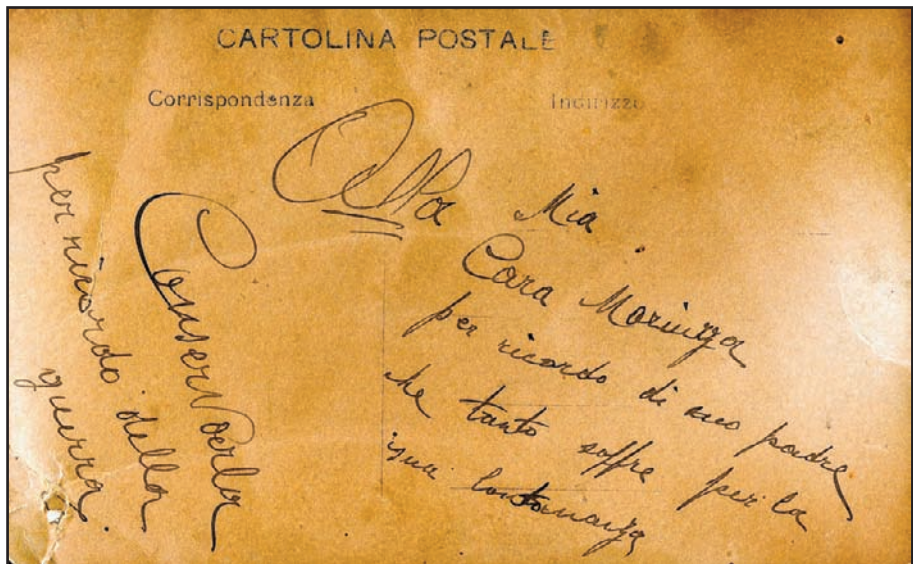 CARTOLINA POSTALE
Corrispondenza
Indirizzo
Alla Mia
Cara
per ricordo di suo padre
che tanto soffre per la
sua lontananza
Conservarla
per ricordo della
guerra.